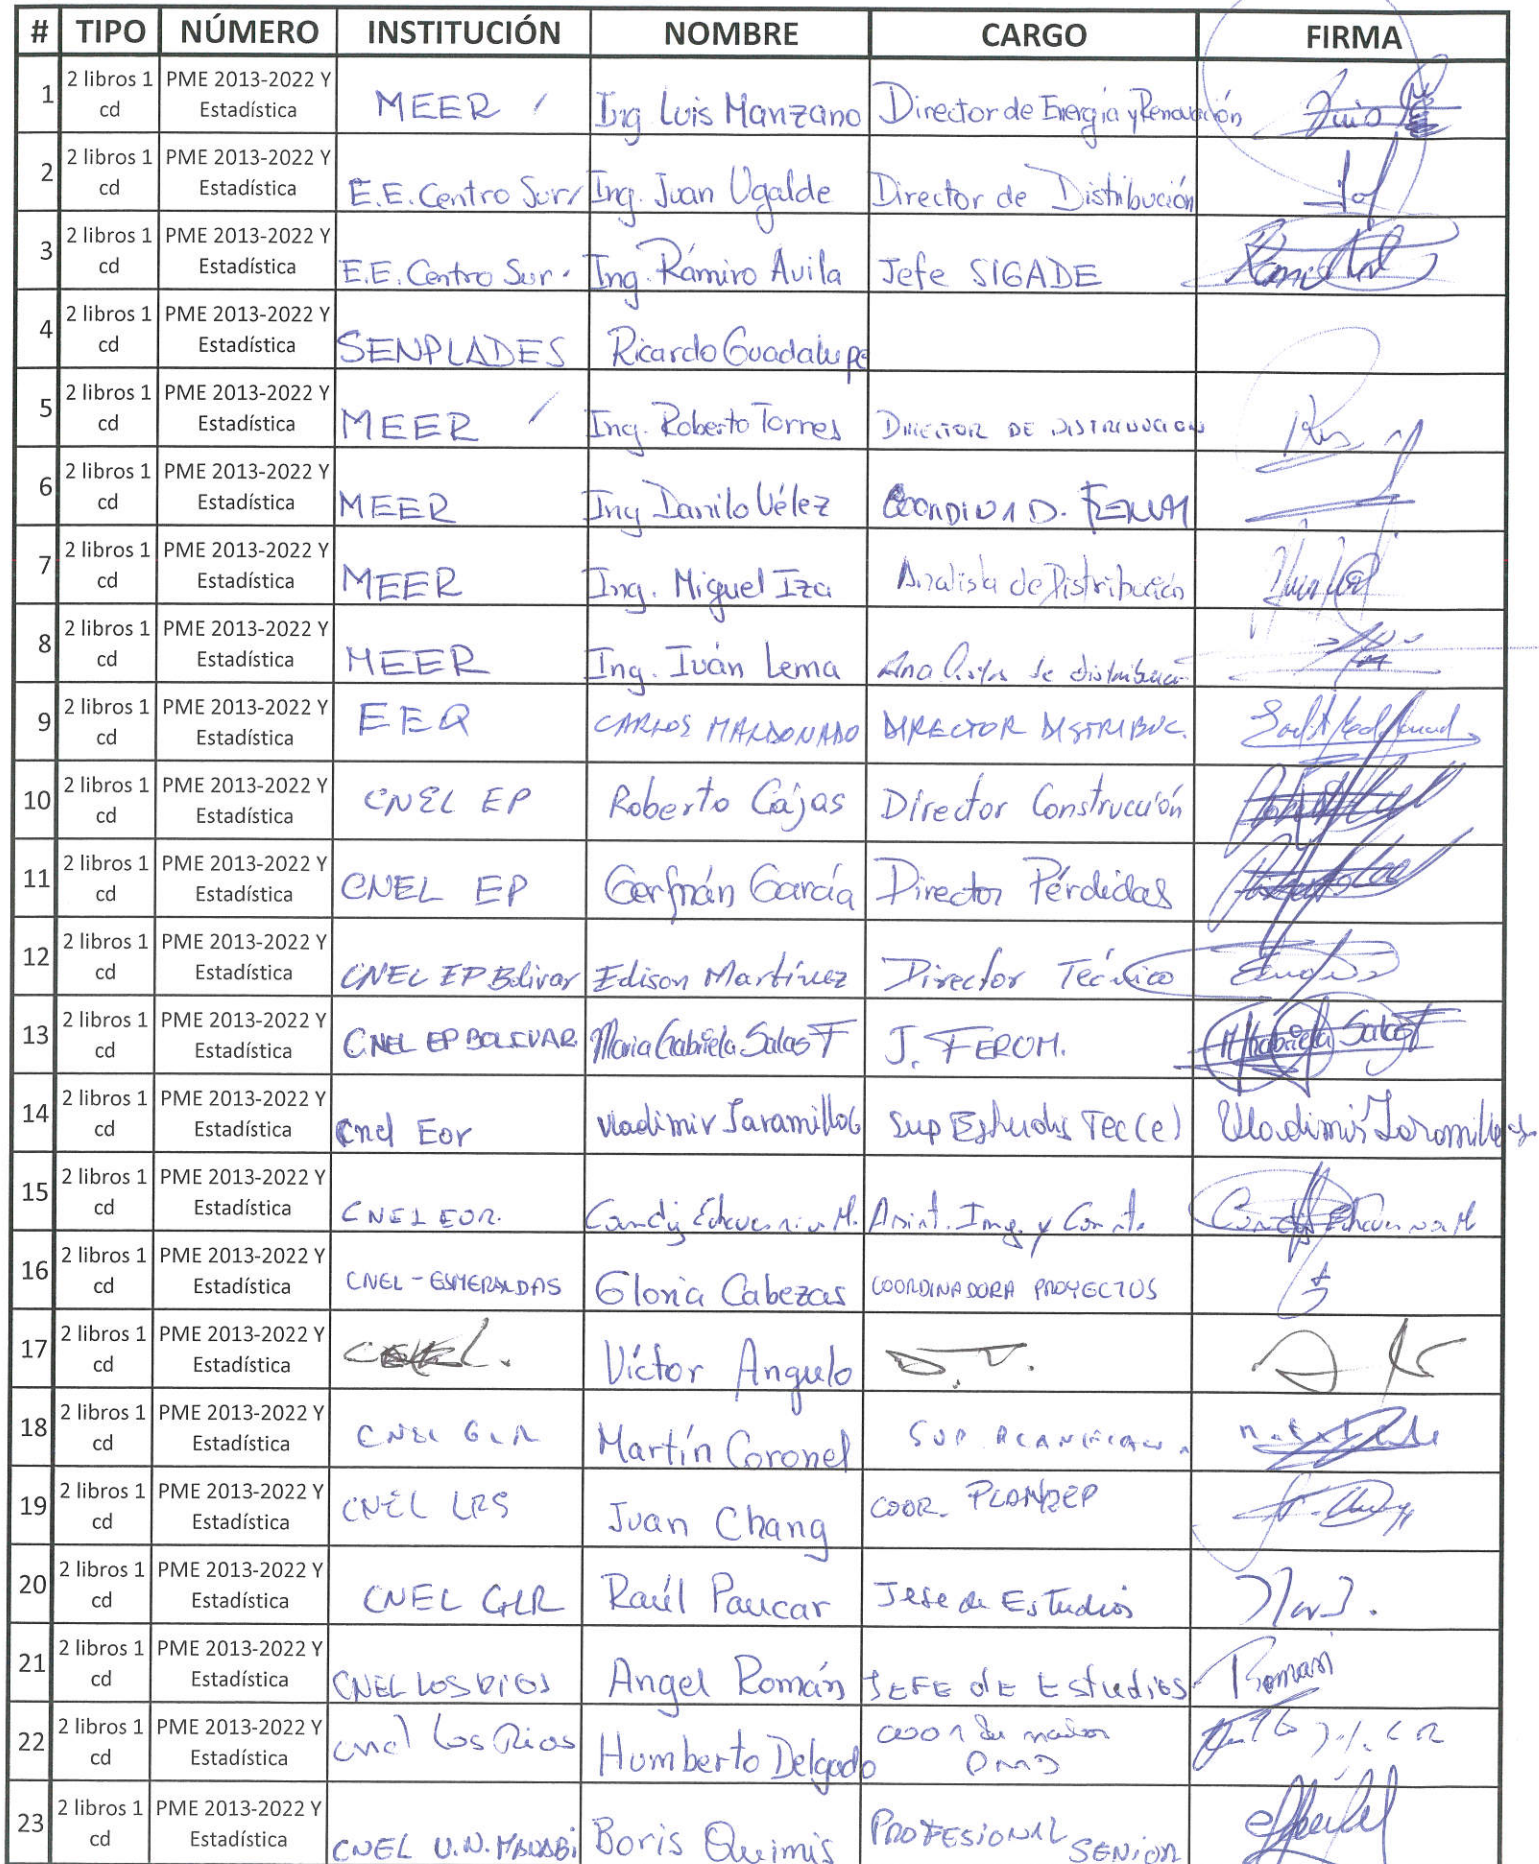 # TIPO NÚMERO INSTITUCIÓN NOMBRE CARGO FIRMA
1 2 libros 1 cd PME 2013-2022 Y Estadística MEER Ing Luis Manzano Director de Energía y Renovación
2 2 libros 1 cd PME 2013-2022 Y Estadística E.E. Centro Sur Ing. Juan Ugalde Director de Distribución
3 2 libros 1 cd PME 2013-2022 Y Estadística E.E. Centro Sur Ing. Ramiro Avila Jefe SIGADE
4 2 libros 1 cd PME 2013-2022 Y Estadística SENPLADES Ricardo Guadalupe
5 2 libros 1 cd PME 2013-2022 Y Estadística MEER Ing. Roberto Torres DIRECTOR DE DISTRIBUCION
6 2 libros 1 cd PME 2013-2022 Y Estadística MEER Ing Danilo Vélez
7 2 libros 1 cd PME 2013-2022 Y Estadística MEER Ing. Miguel Iza Analista de Distribución
8 2 libros 1 cd PME 2013-2022 Y Estadística MEER Ing. Iván Lema Analista de distribución
9 2 libros 1 cd PME 2013-2022 Y Estadística EEQ CARLOS MALDONADO DIRECTOR DISTRIBUC.
10 2 libros 1 cd PME 2013-2022 Y Estadística CNEL EP Roberto Cajas Director Construcción
11 2 libros 1 cd PME 2013-2022 Y Estadística CNEL EP Germán García Director Pérdidas
12 2 libros 1 cd PME 2013-2022 Y Estadística CNEL EP Bolivar Edison Martínez Director Técnico
13 2 libros 1 cd PME 2013-2022 Y Estadística CNEL EP BOLIVAR Maria Gabriela Salas F J. FEROM. MGabriela Salas F
14 2 libros 1 cd PME 2013-2022 Y Estadística Cnel Eor Vladimir Jaramillo Sup Estudios Tec (e) Vladimir Jaramillo
15 2 libros 1 cd PME 2013-2022 Y Estadística CNEL EOR. Candy Echeverria M. Asist. Ing. y Const.
16 2 libros 1 cd PME 2013-2022 Y Estadística CNEL - ESMERALDAS Gloria Cabezas COORDINADORA PROYECTOS
17 2 libros 1 cd PME 2013-2022 Y Estadística Víctor Angulo D.T.
18 2 libros 1 cd PME 2013-2022 Y Estadística CNEL GLR Martín Coronel SUP
19 2 libros 1 cd PME 2013-2022 Y Estadística CNEL LRS Juan Chang COOR.
20 2 libros 1 cd PME 2013-2022 Y Estadística CNEL GLR Raúl Paucar Jefe de Estudios
21 2 libros 1 cd PME 2013-2022 Y Estadística CNEL LOS RIOS Angel Román JEFE dE Estudios Roman
22 2 libros 1 cd PME 2013-2022 Y Estadística cnel Los Rios Humberto Delgado
23 2 libros 1 cd PME 2013-2022 Y Estadística CNEL U.N. MANABI Boris Quimis PROFESIONAL SENIOR